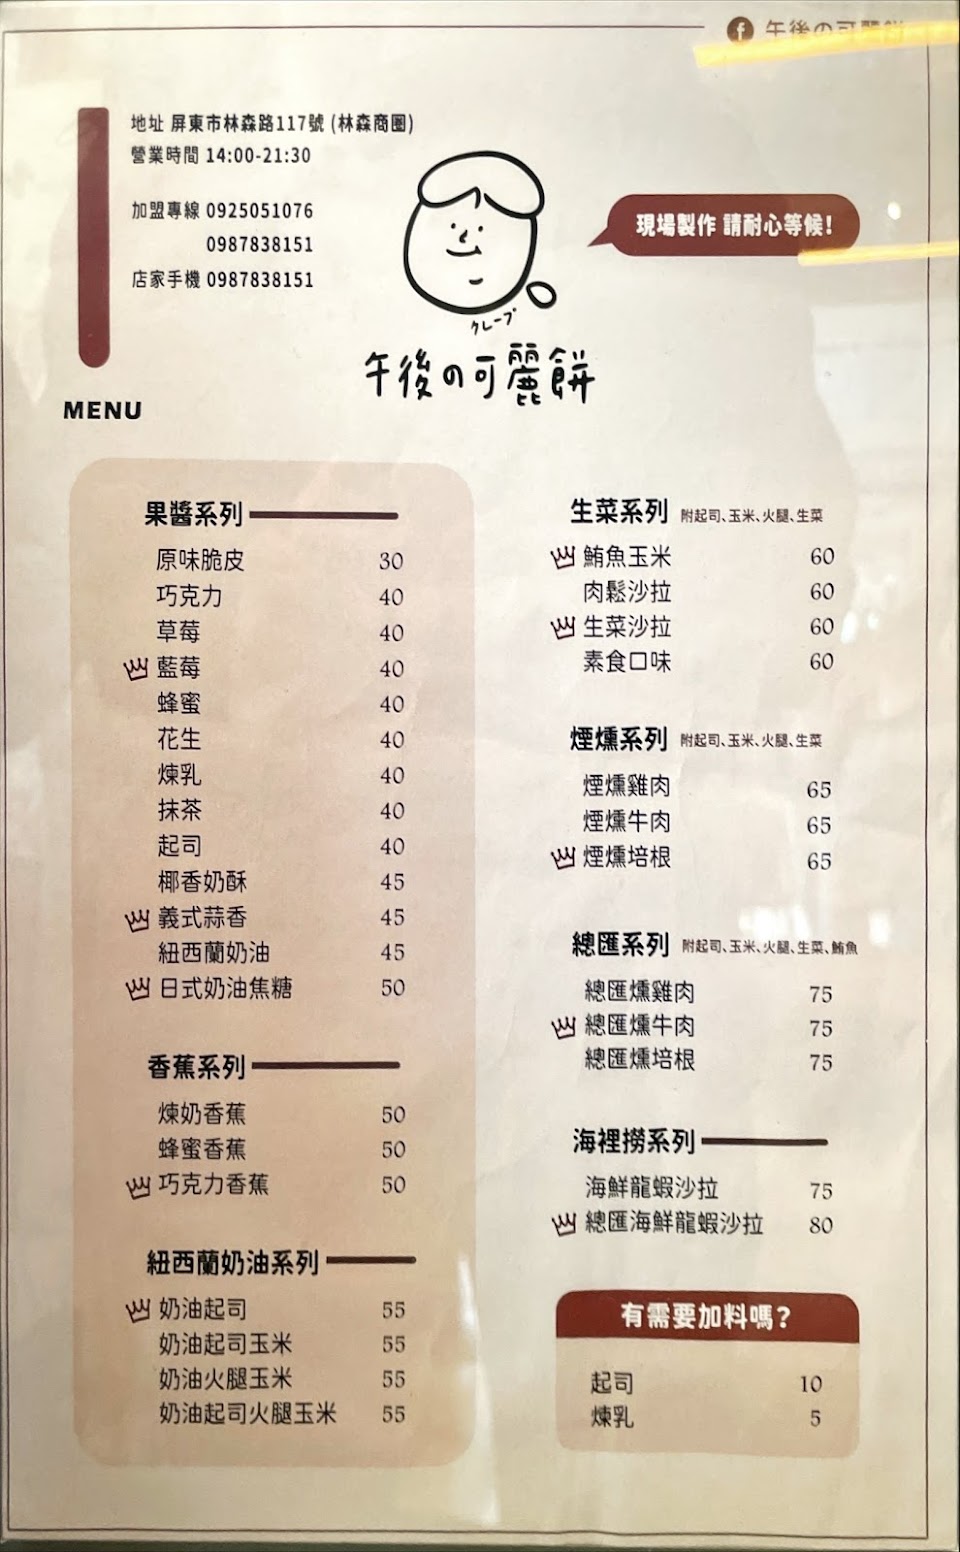 午後の可麗餅
地址 屏東市林森路117號 (林森商圈)
營業時間 14:00-21:30
加盟專線 0925051076
0987838151
店家手機 0987838151
現場製作 請耐心等候!
クレープ
午後の可麗餅
MENU
果醬系列
原味脆皮 30
巧克力 40
草莓 40
藍莓 40
蜂蜜 40
花生 40
煉乳 40
抹茶 40
起司 40
椰香奶酥 45
義式蒜香 45
紐西蘭奶油 45
日式奶油焦糖 50
香蕉系列
煉奶香蕉 50
蜂蜜香蕉 50
巧克力香蕉 50
紐西蘭奶油系列
奶油起司 55
奶油起司玉米 55
奶油火腿玉米 55
奶油起司火腿玉米 55
生菜系列 附起司、玉米、火腿、生菜
鮪魚玉米 60
肉鬆沙拉 60
生菜沙拉 60
素食口味 60
煙燻系列 附起司、玉米、火腿、生菜
煙燻雞肉 65
煙燻牛肉 65
煙燻培根 65
總匯系列 附起司、玉米、火腿、生菜、鮪魚
總匯燻雞肉 75
總匯燻牛肉 75
總匯燻培根 75
海裡撈系列
海鮮龍蝦沙拉 75
總匯海鮮龍蝦沙拉 80
有需要加料嗎?
起司 10
煉乳 5